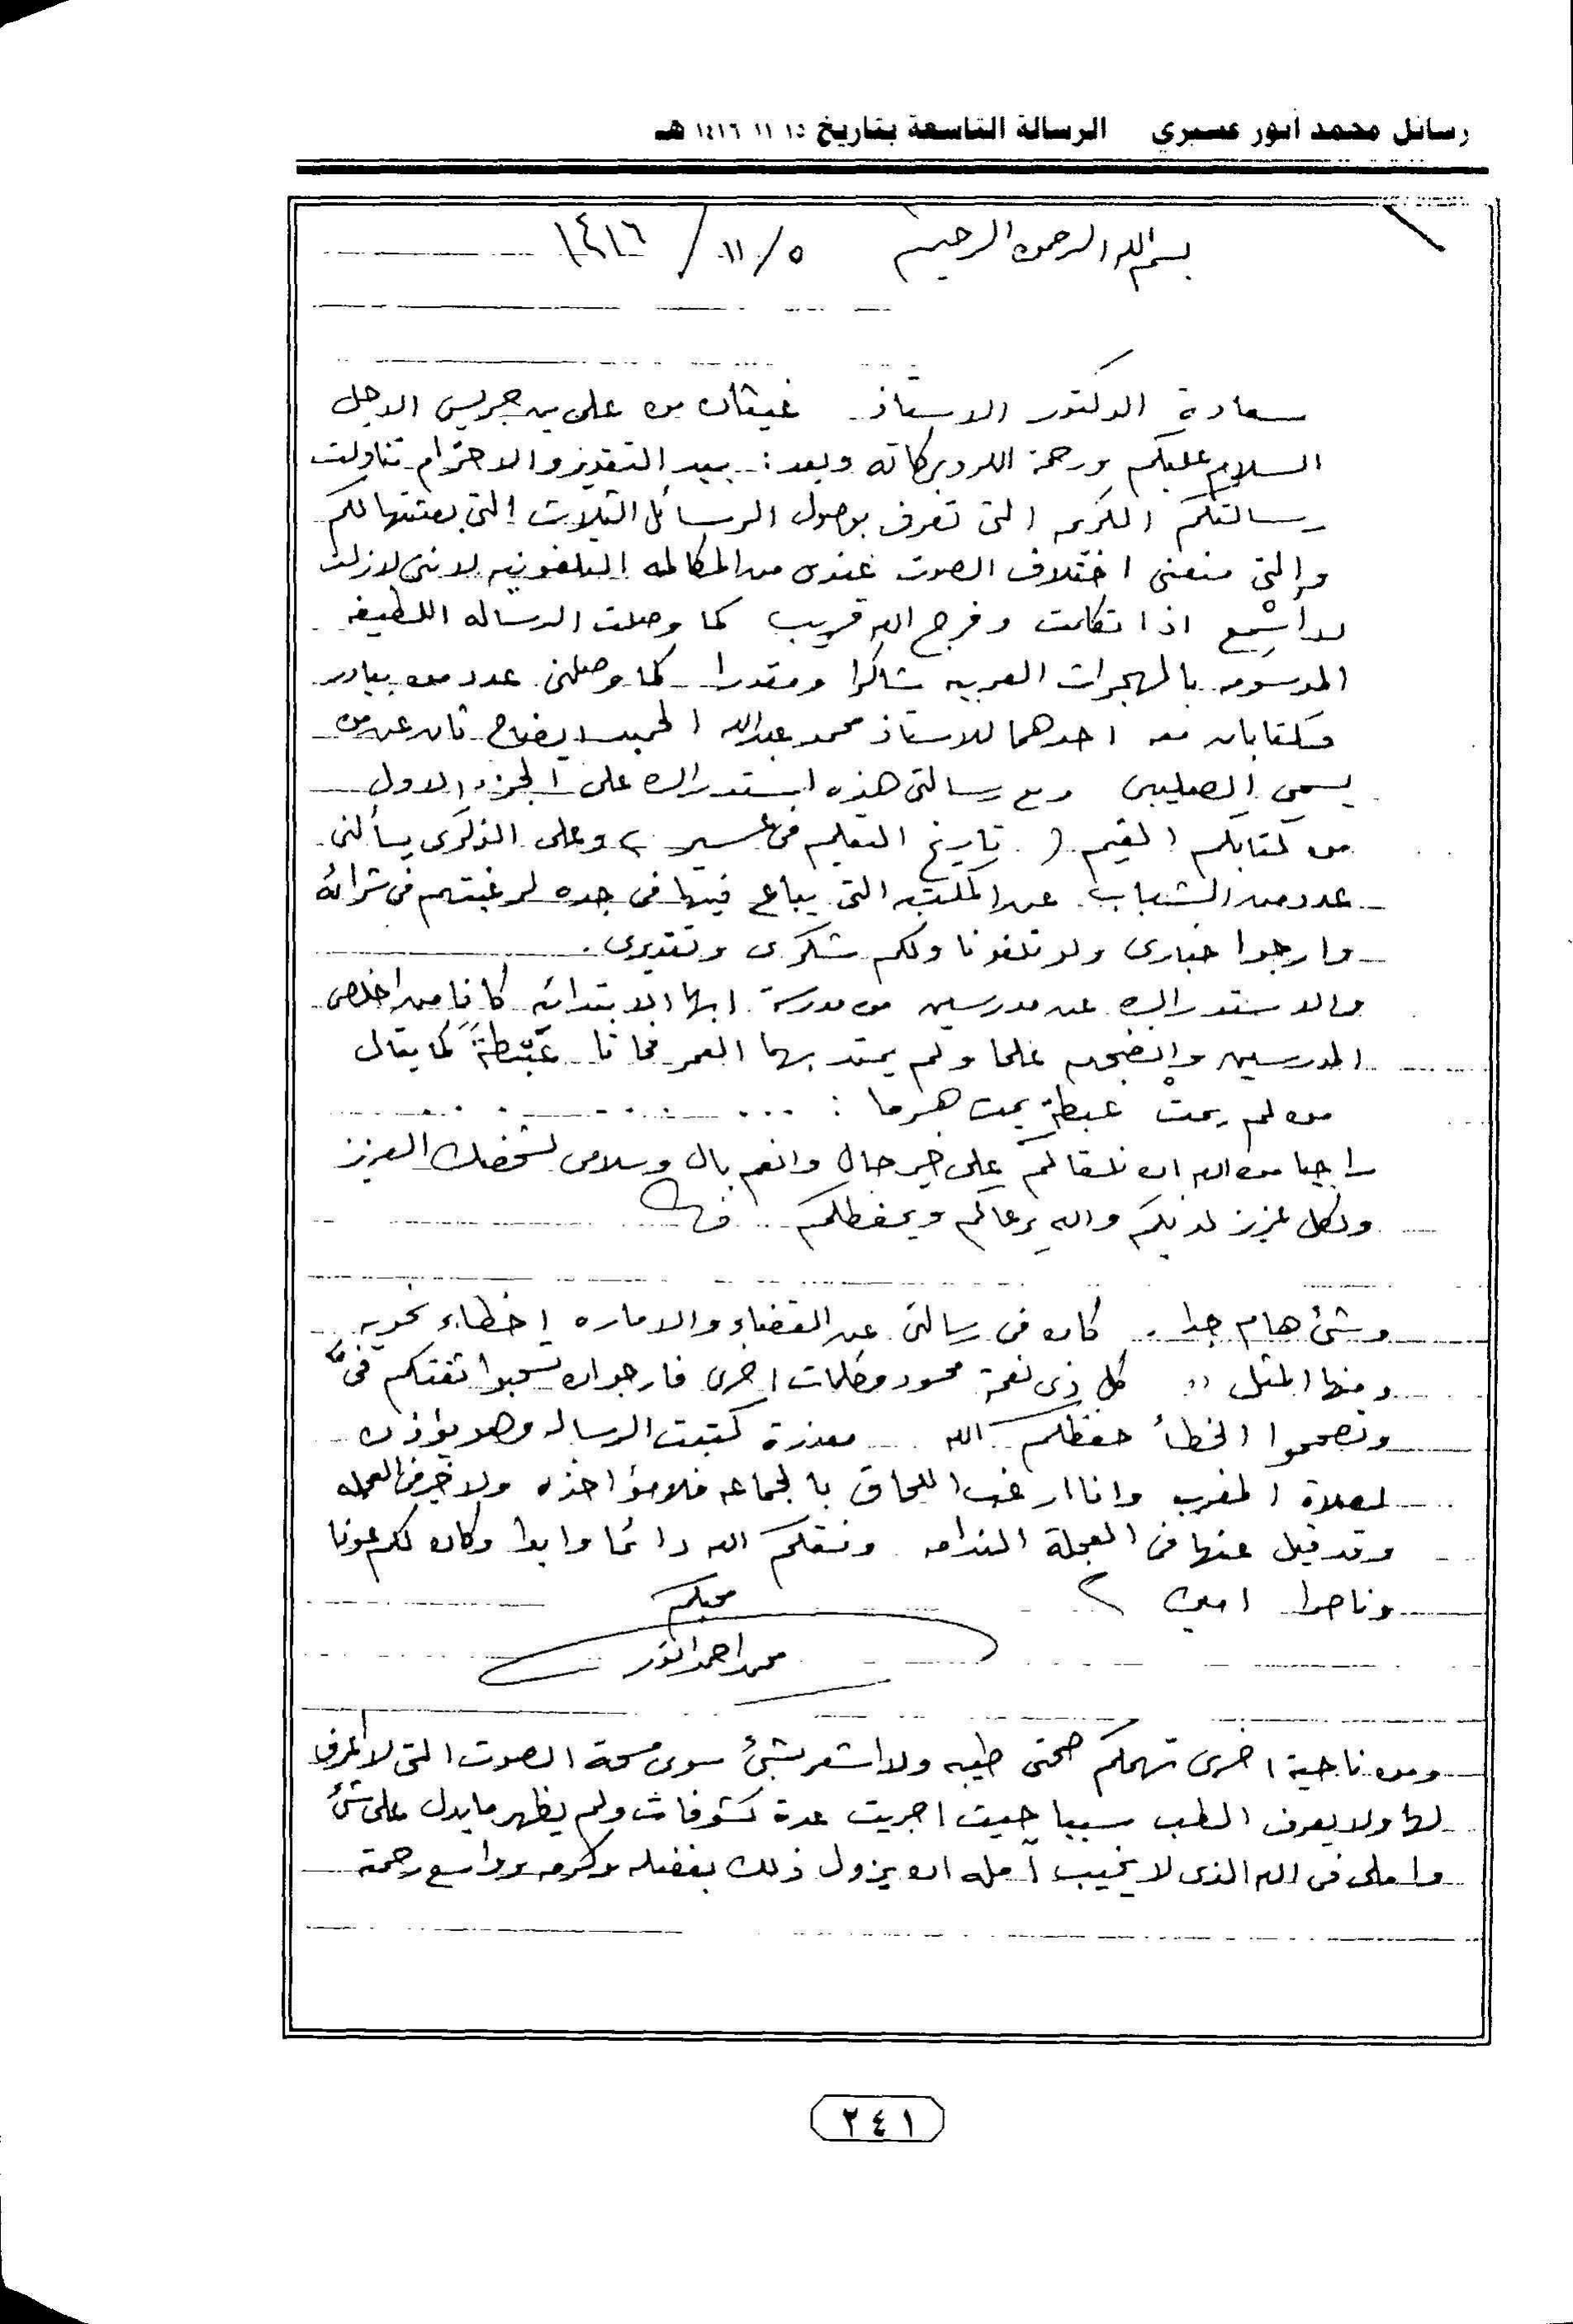 رسائل محمد أنور عسيري الرسالة التاسعة بتاريخ ١٥ ١١ ١٤١٦ هـ
بسم الله الرحمن الرحيم ٥/ ١١/ ١٤١٦
سعادة الدكتور الاستاذ غيثان بن علي بن جريس الاجل
السلام عليكم ورحمة الله وبركاته وبعد: بيد التقدير والاحترام تناولت
رسالتكم الكريمه التى تعرف بوصول الرسائل الثلاث التى بعثتها لكم
والتى منعنى اختلاف الصوت عندى من المكالمه التلفونيه لاننى لازلت
لا أسْمع اذا تكلمت وفرج الله قريب كما وصلت الرساله اللطيفه
الموسومه بالهجرات العربيه شاكرا ومقدرا كما وصلنى عدد من بيادر
وكتابان معه احدهما للاستاذ محمد عبدالله الحميد ايضاح ثان عن من
يسمى الصليبى ومع رسالتى هذه استدراك على الجزء الاول
من كتابكم القيم ( تاريخ التعليم فى عسير ) وعلى الذكرى يسألنى
عدد من الشباب عن المكتبه التى يباع فيها فى جده لرغبتهم فى شرائه
وارجوا خبارى ولو تلفونا ولكم شكرى وتقديرى .
والاستدراك عن مدرسين من مدرسة ابها الابتدائيه كانا من اخلص
المدرسين وانضجهم علما ولم يمتد بهما العمر فماتا عَبْطةً كما يقال
من لم يمتْ عبطة يمت هرما : . . .
راجيا من الله ان نلقاكم على خير حال وانعم بال وسلامى لشخصك العزيز
ولكل عزيز لديكم والله يرعاكم ويحفظكم
وشئ هام جدا . كان فى رسالتى عن القضاء والاماره اخطاء نحويه
ومنها المثل " كل ذى نعمة محسود وكلمات اخرى فارجو ان تسحبوا ثقتكم فىّ
وتصححوا الخطأ حفظكم الله معذرة كتبت الرساله وهو يؤذن
لصلاة المغرب وانا ارغب اللحاق بالجماعه فلا مؤاخذه ولا خير فى العجله
وقد قيل عنها فى العجلة الندامه وفقكم الله دائما وابدا وكان لكم عونا
وناصرا امين
محبكم
محمد احمد انور
ومن ناحية اخرى تهمكم صحتى طيبه ولا اشعر بشئ سوى مسحة الصوت التى لا اعرف
لها ولا يعرف الطب سببا حيث اجريت عدة كشوفات ولم يظهر ما يدل على شئ
واملى فى الله الذى لا يخيب آمله ان يزول ذلك بفضله وكرمه وواسع رحمته
٢٤١